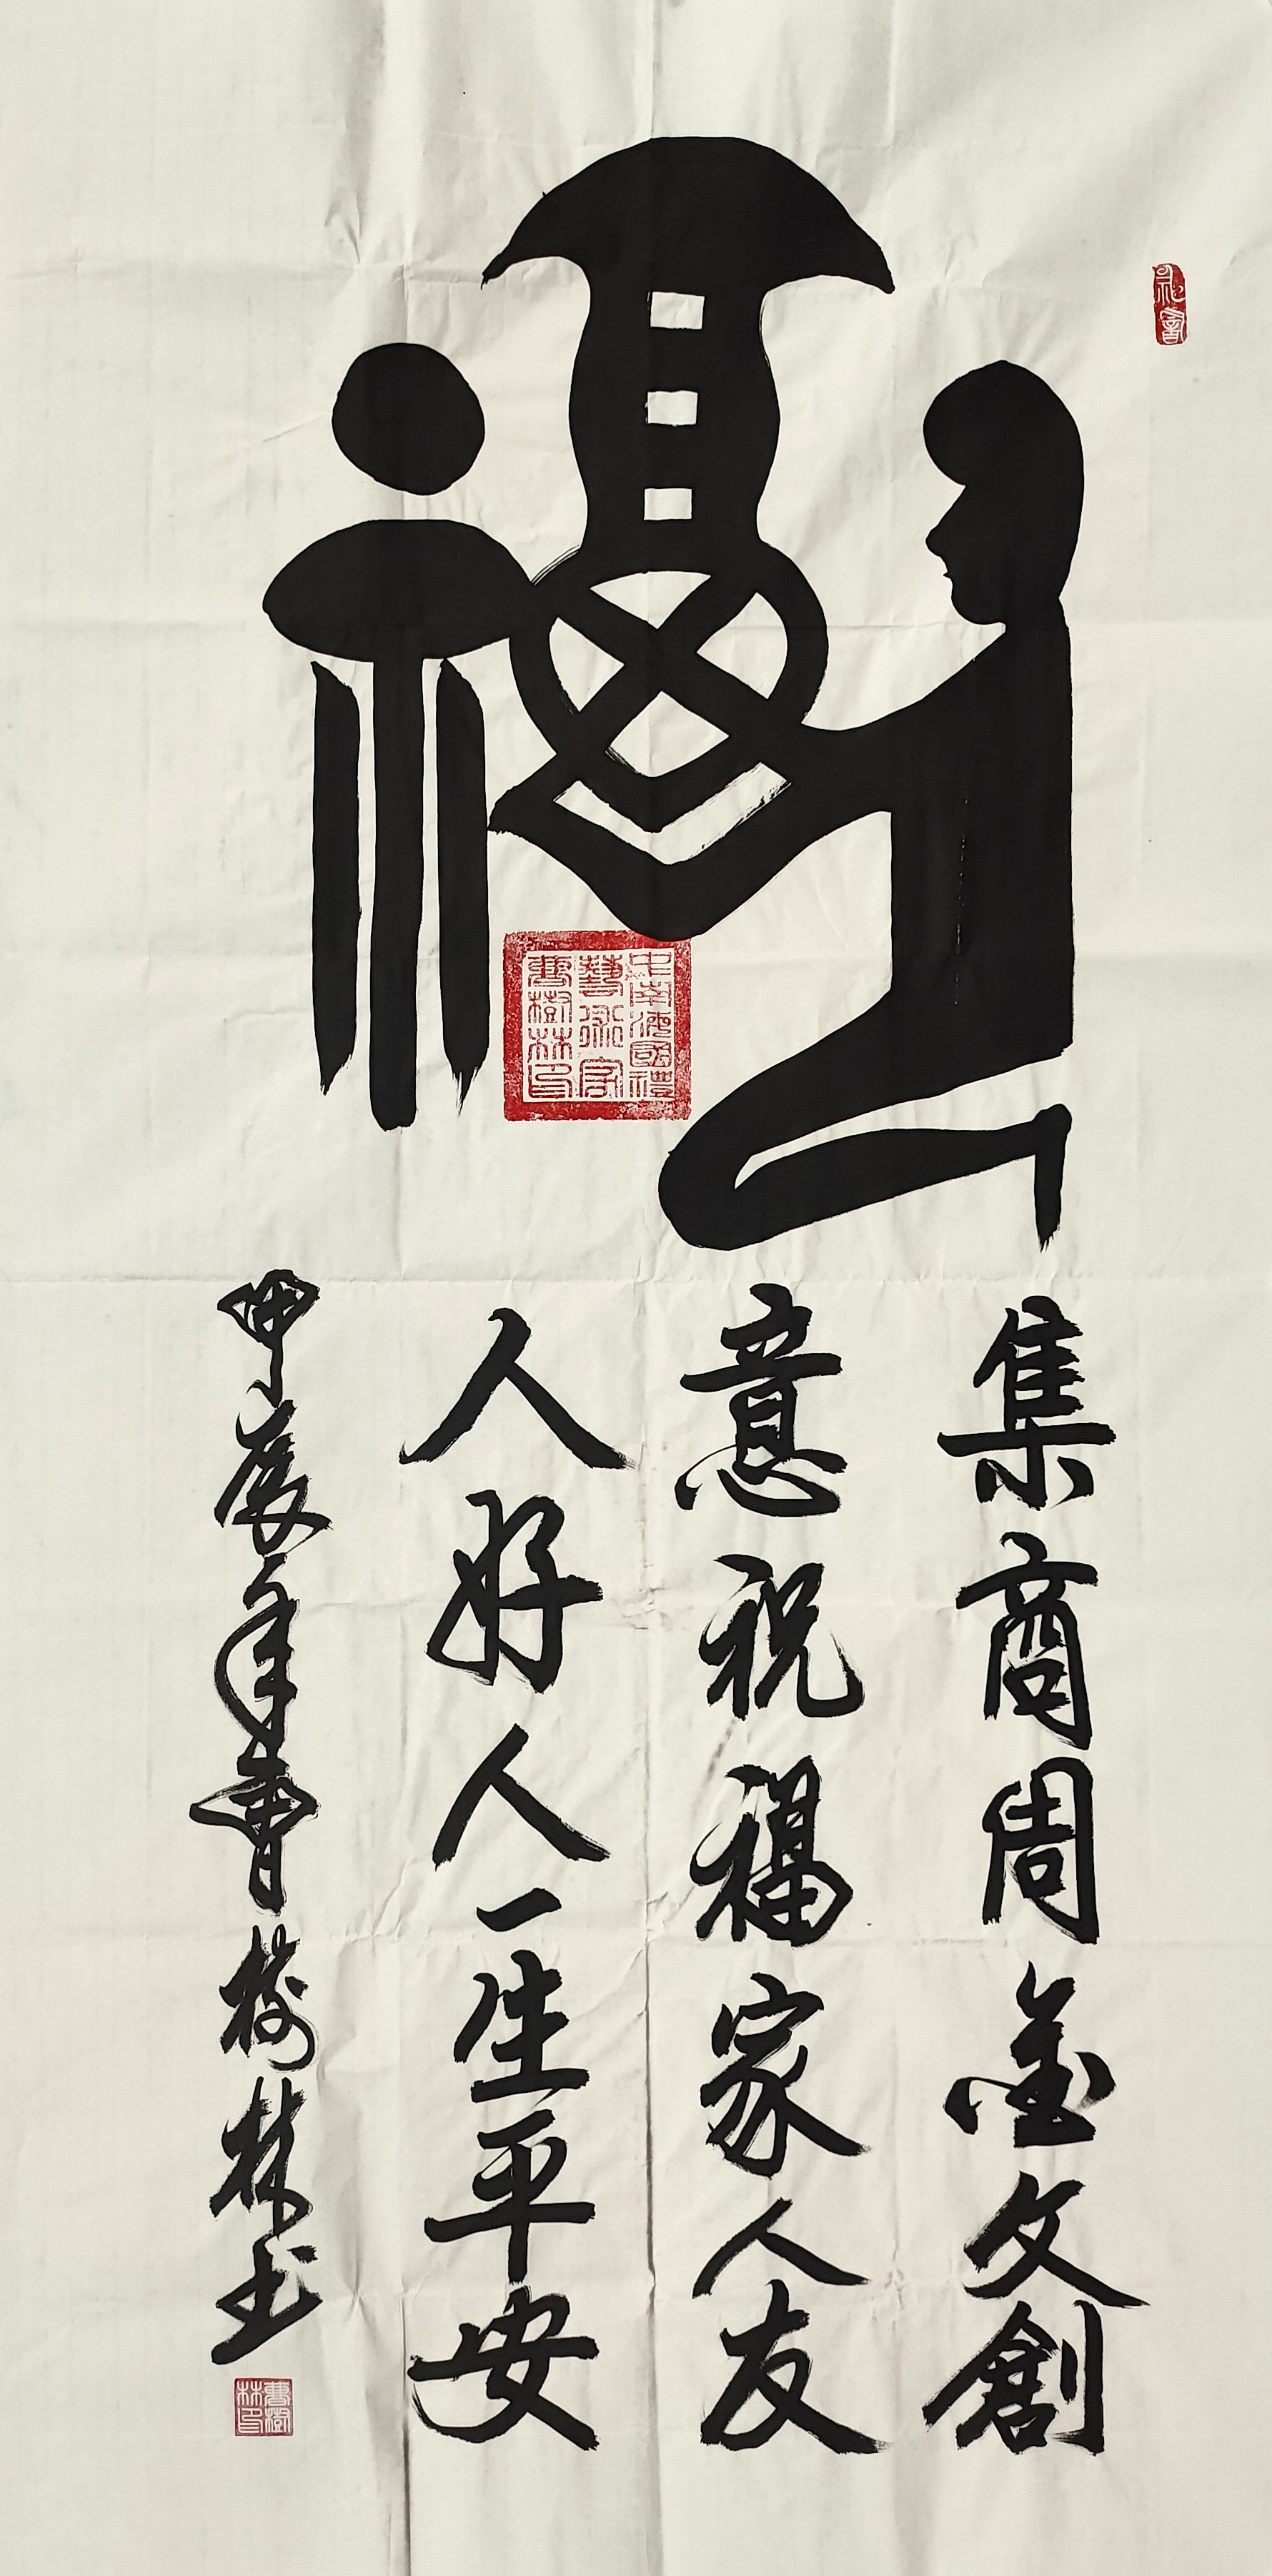 福
集商周金文創
意祝福家人友
人好人一生平安
甲辰年曹樹林书
中南海國禮
藝術家
曹樹林印
曹樹林印